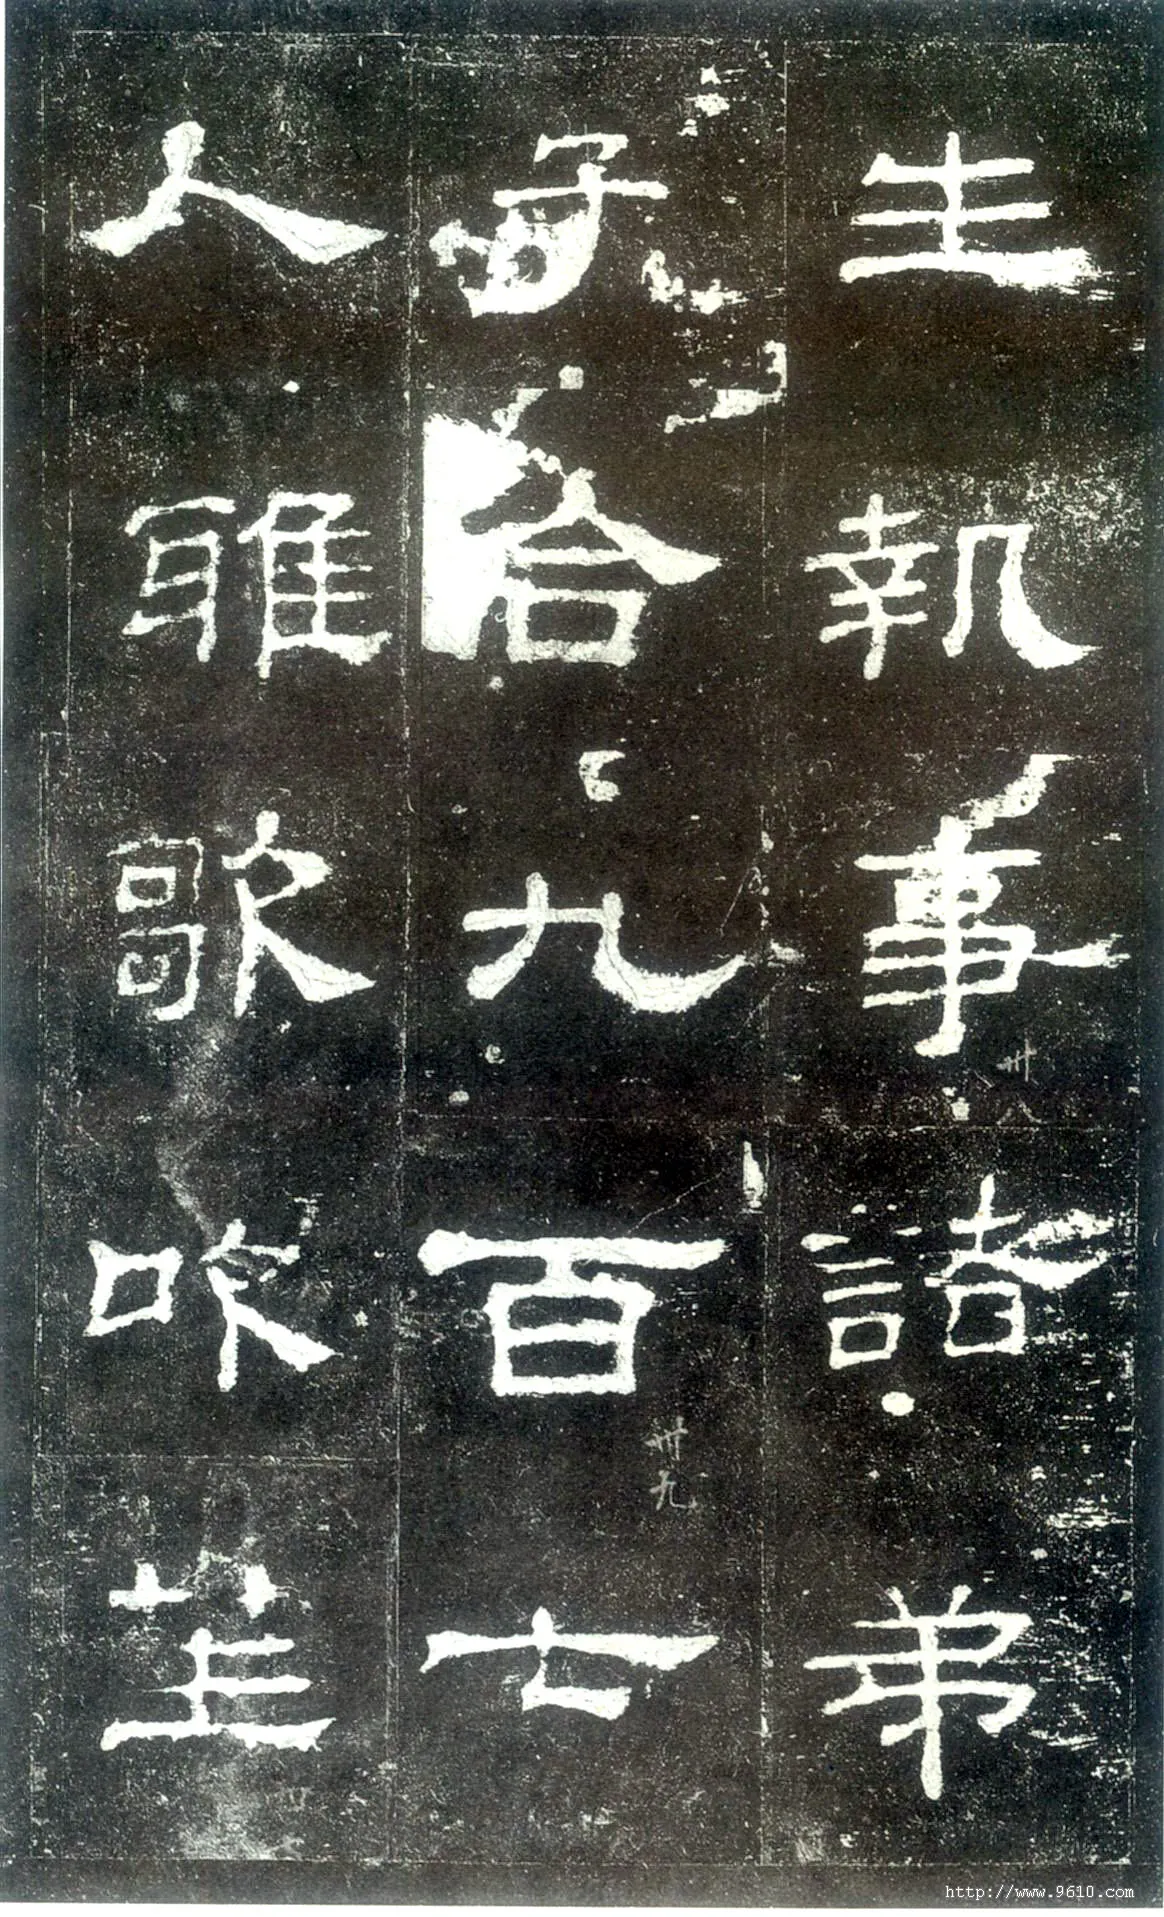 生執事諸弟
子合九百七
人雅歌吹笙
卅八
卅九
http://www.9610.com